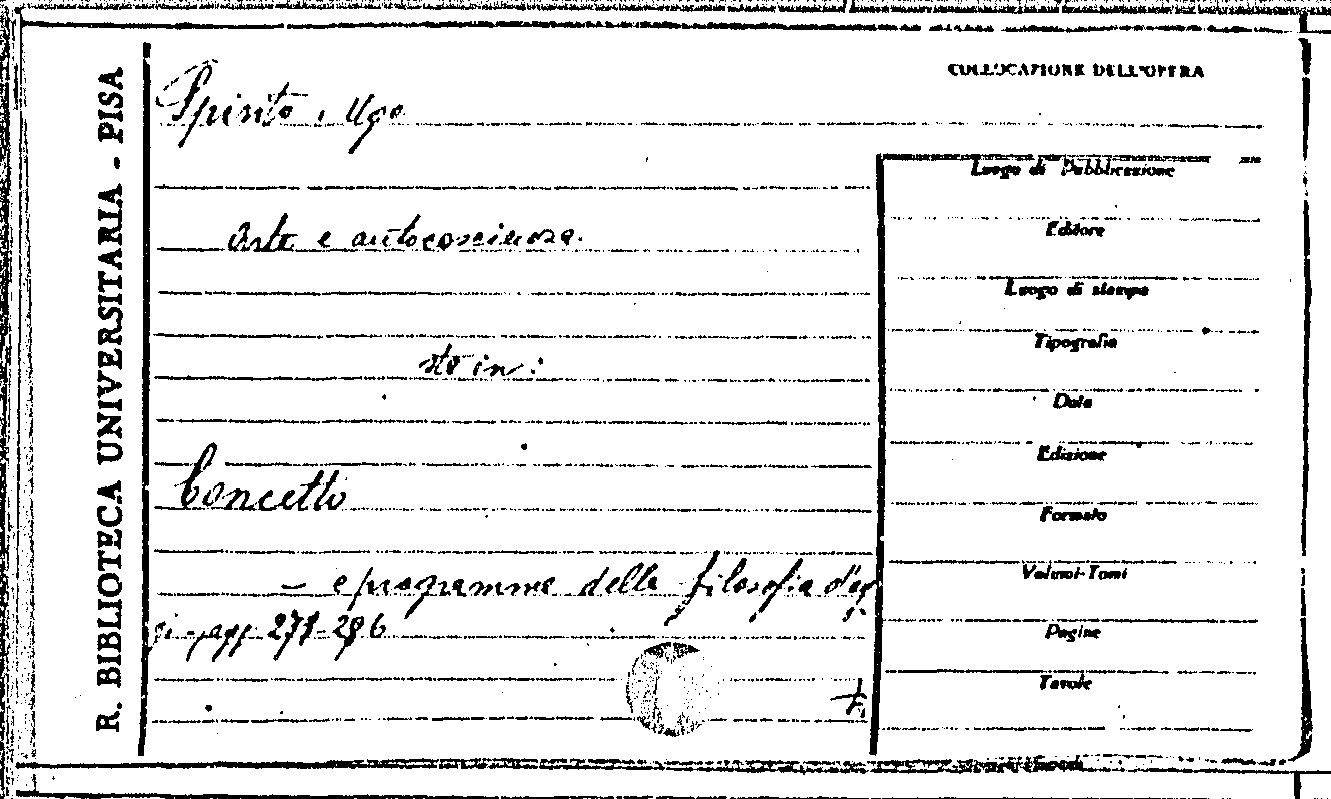 R. BIBLIOTECA UNIVERSITARIA - PISA
COLLOCAZIONE DELL'OPERA
Spirito, Ugo
Arte e autocoscienza.
sta in:
Concetto
— e programma della filosofia d'og
gi - pagg.
Luogo di Pubblicazione
Editore
Luogo di stampa
Tipografia
Data
Edizione
Formato
Volumi-Tomi
Pagine
Tavole